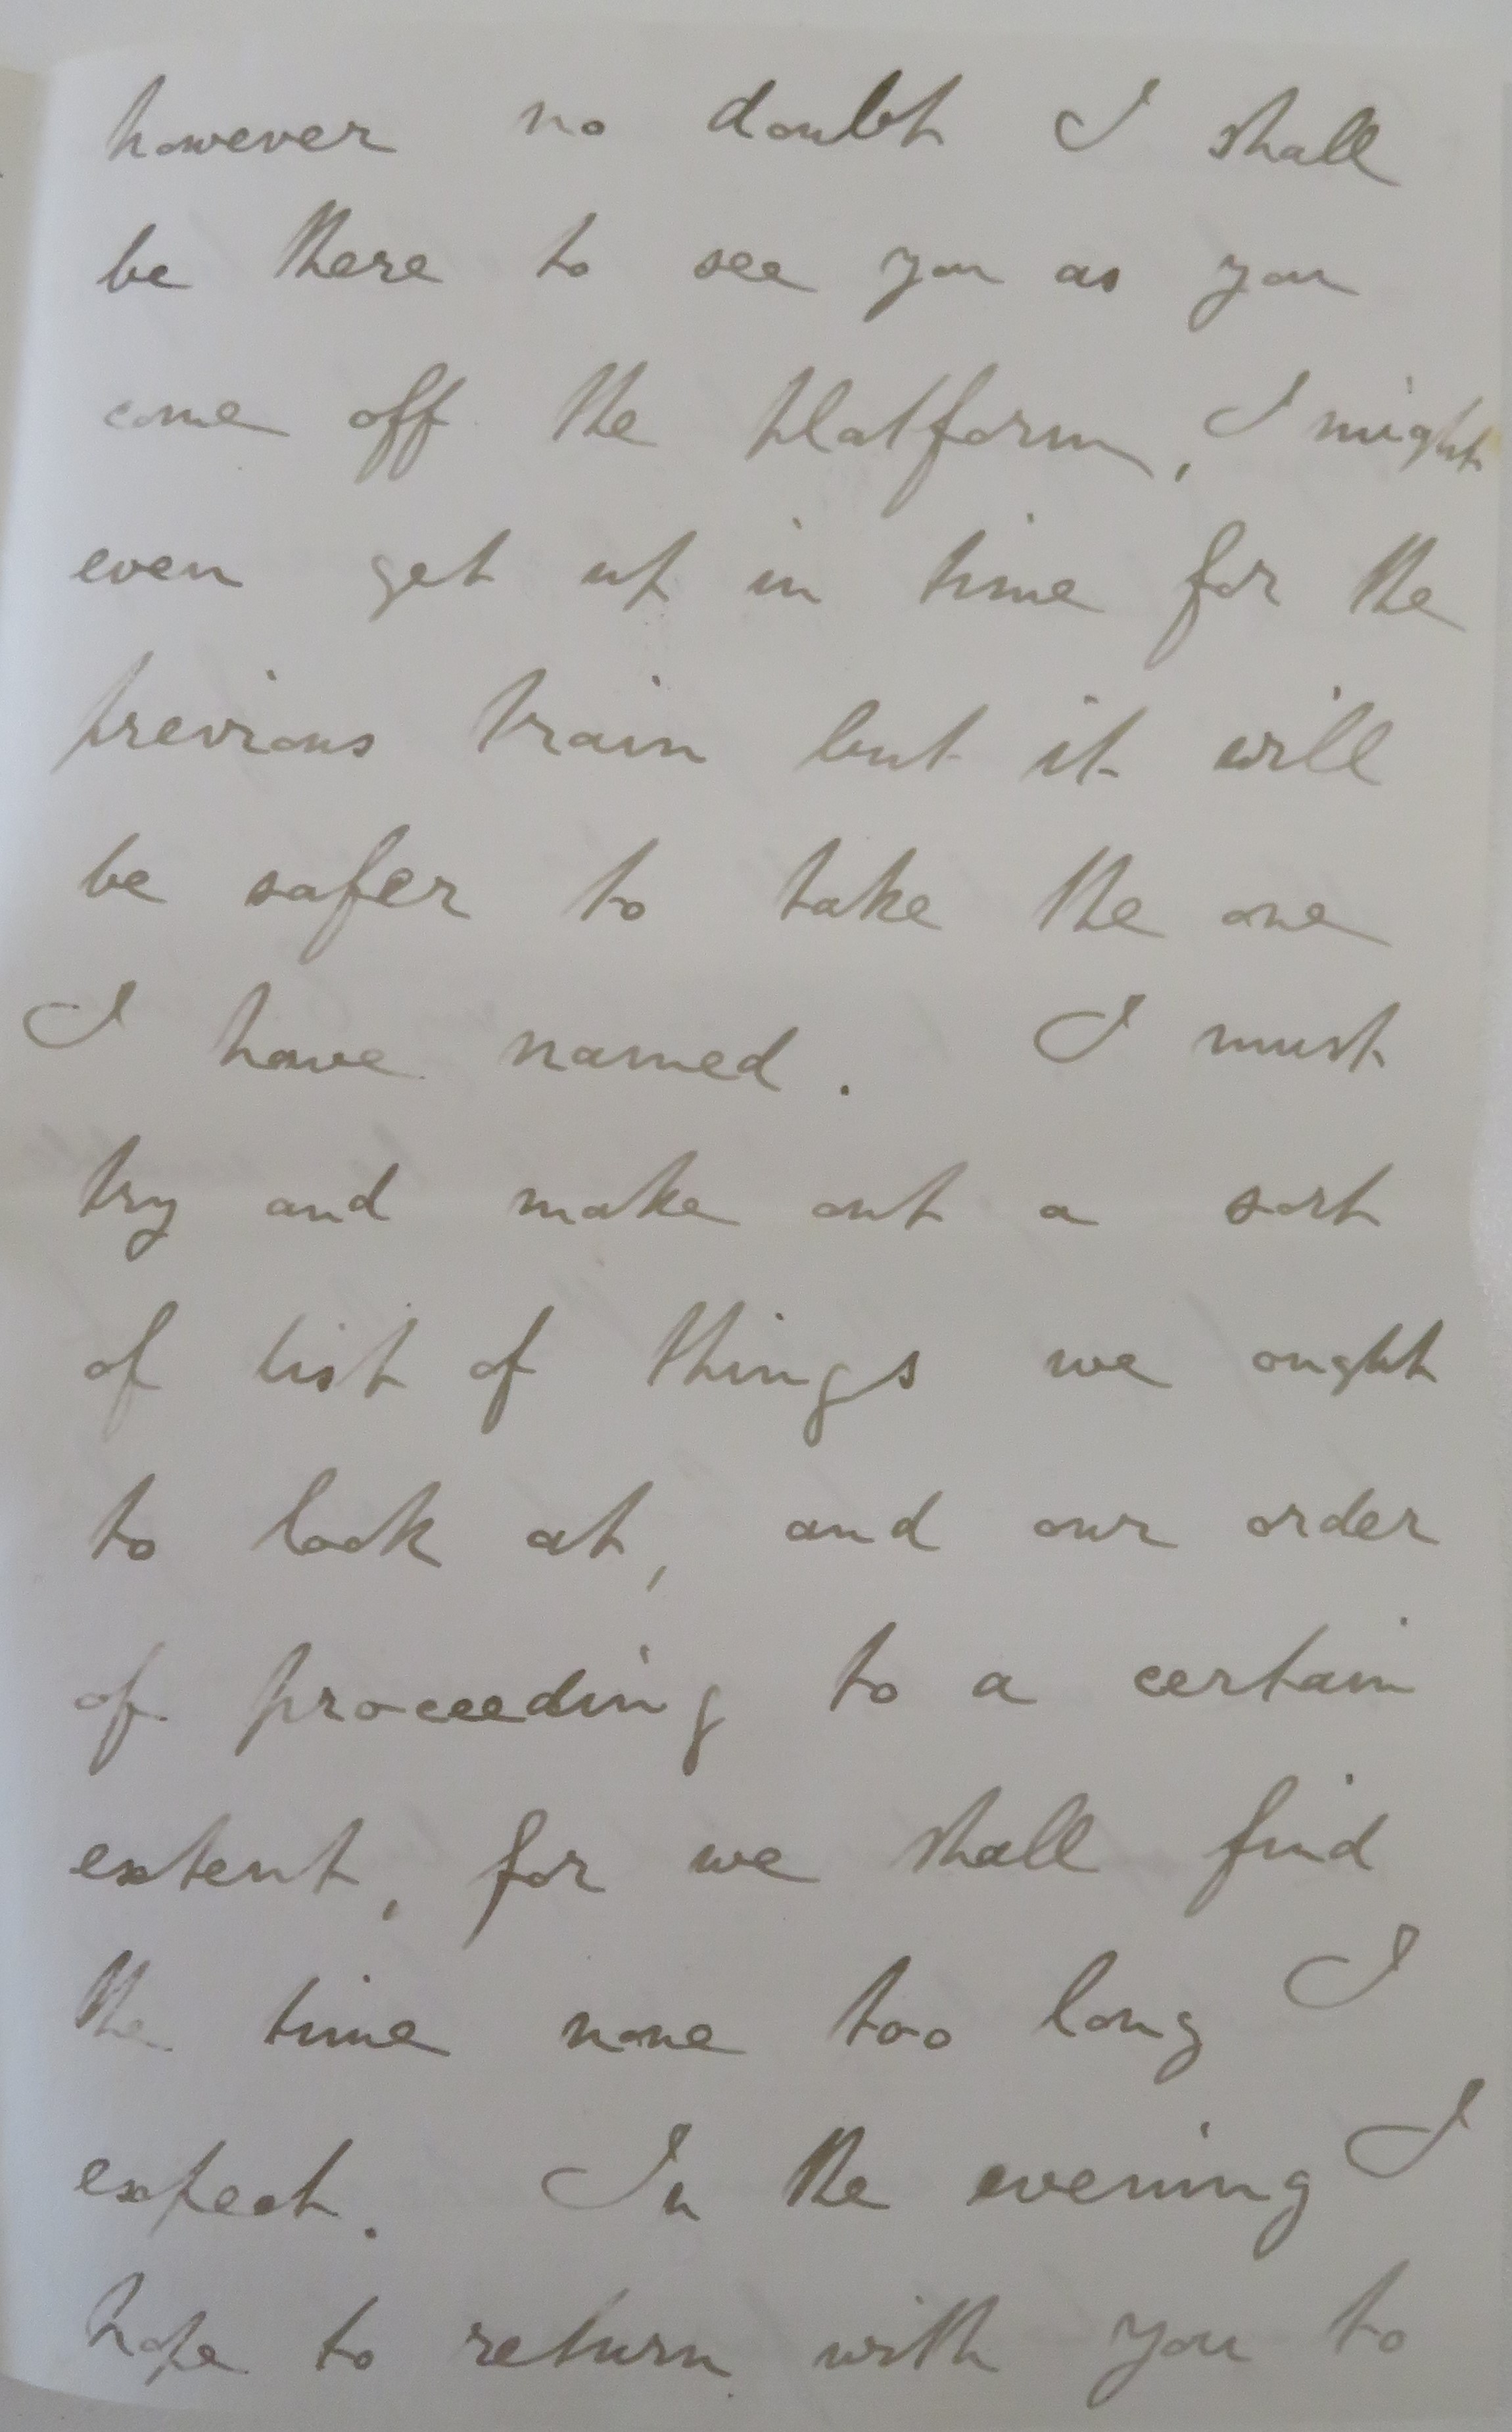 however no doubt I shall
be there to see you as you
come off the platform, I might
even get up in time for the
previous train but it will
be safer to take the one
I have named. I must
try and make out a sort
of list of things we ought
to look at, and our order
of proceeding to a certain
extent, for we shall find
the time none too long I
expect. In the evening I
hope to return with you to